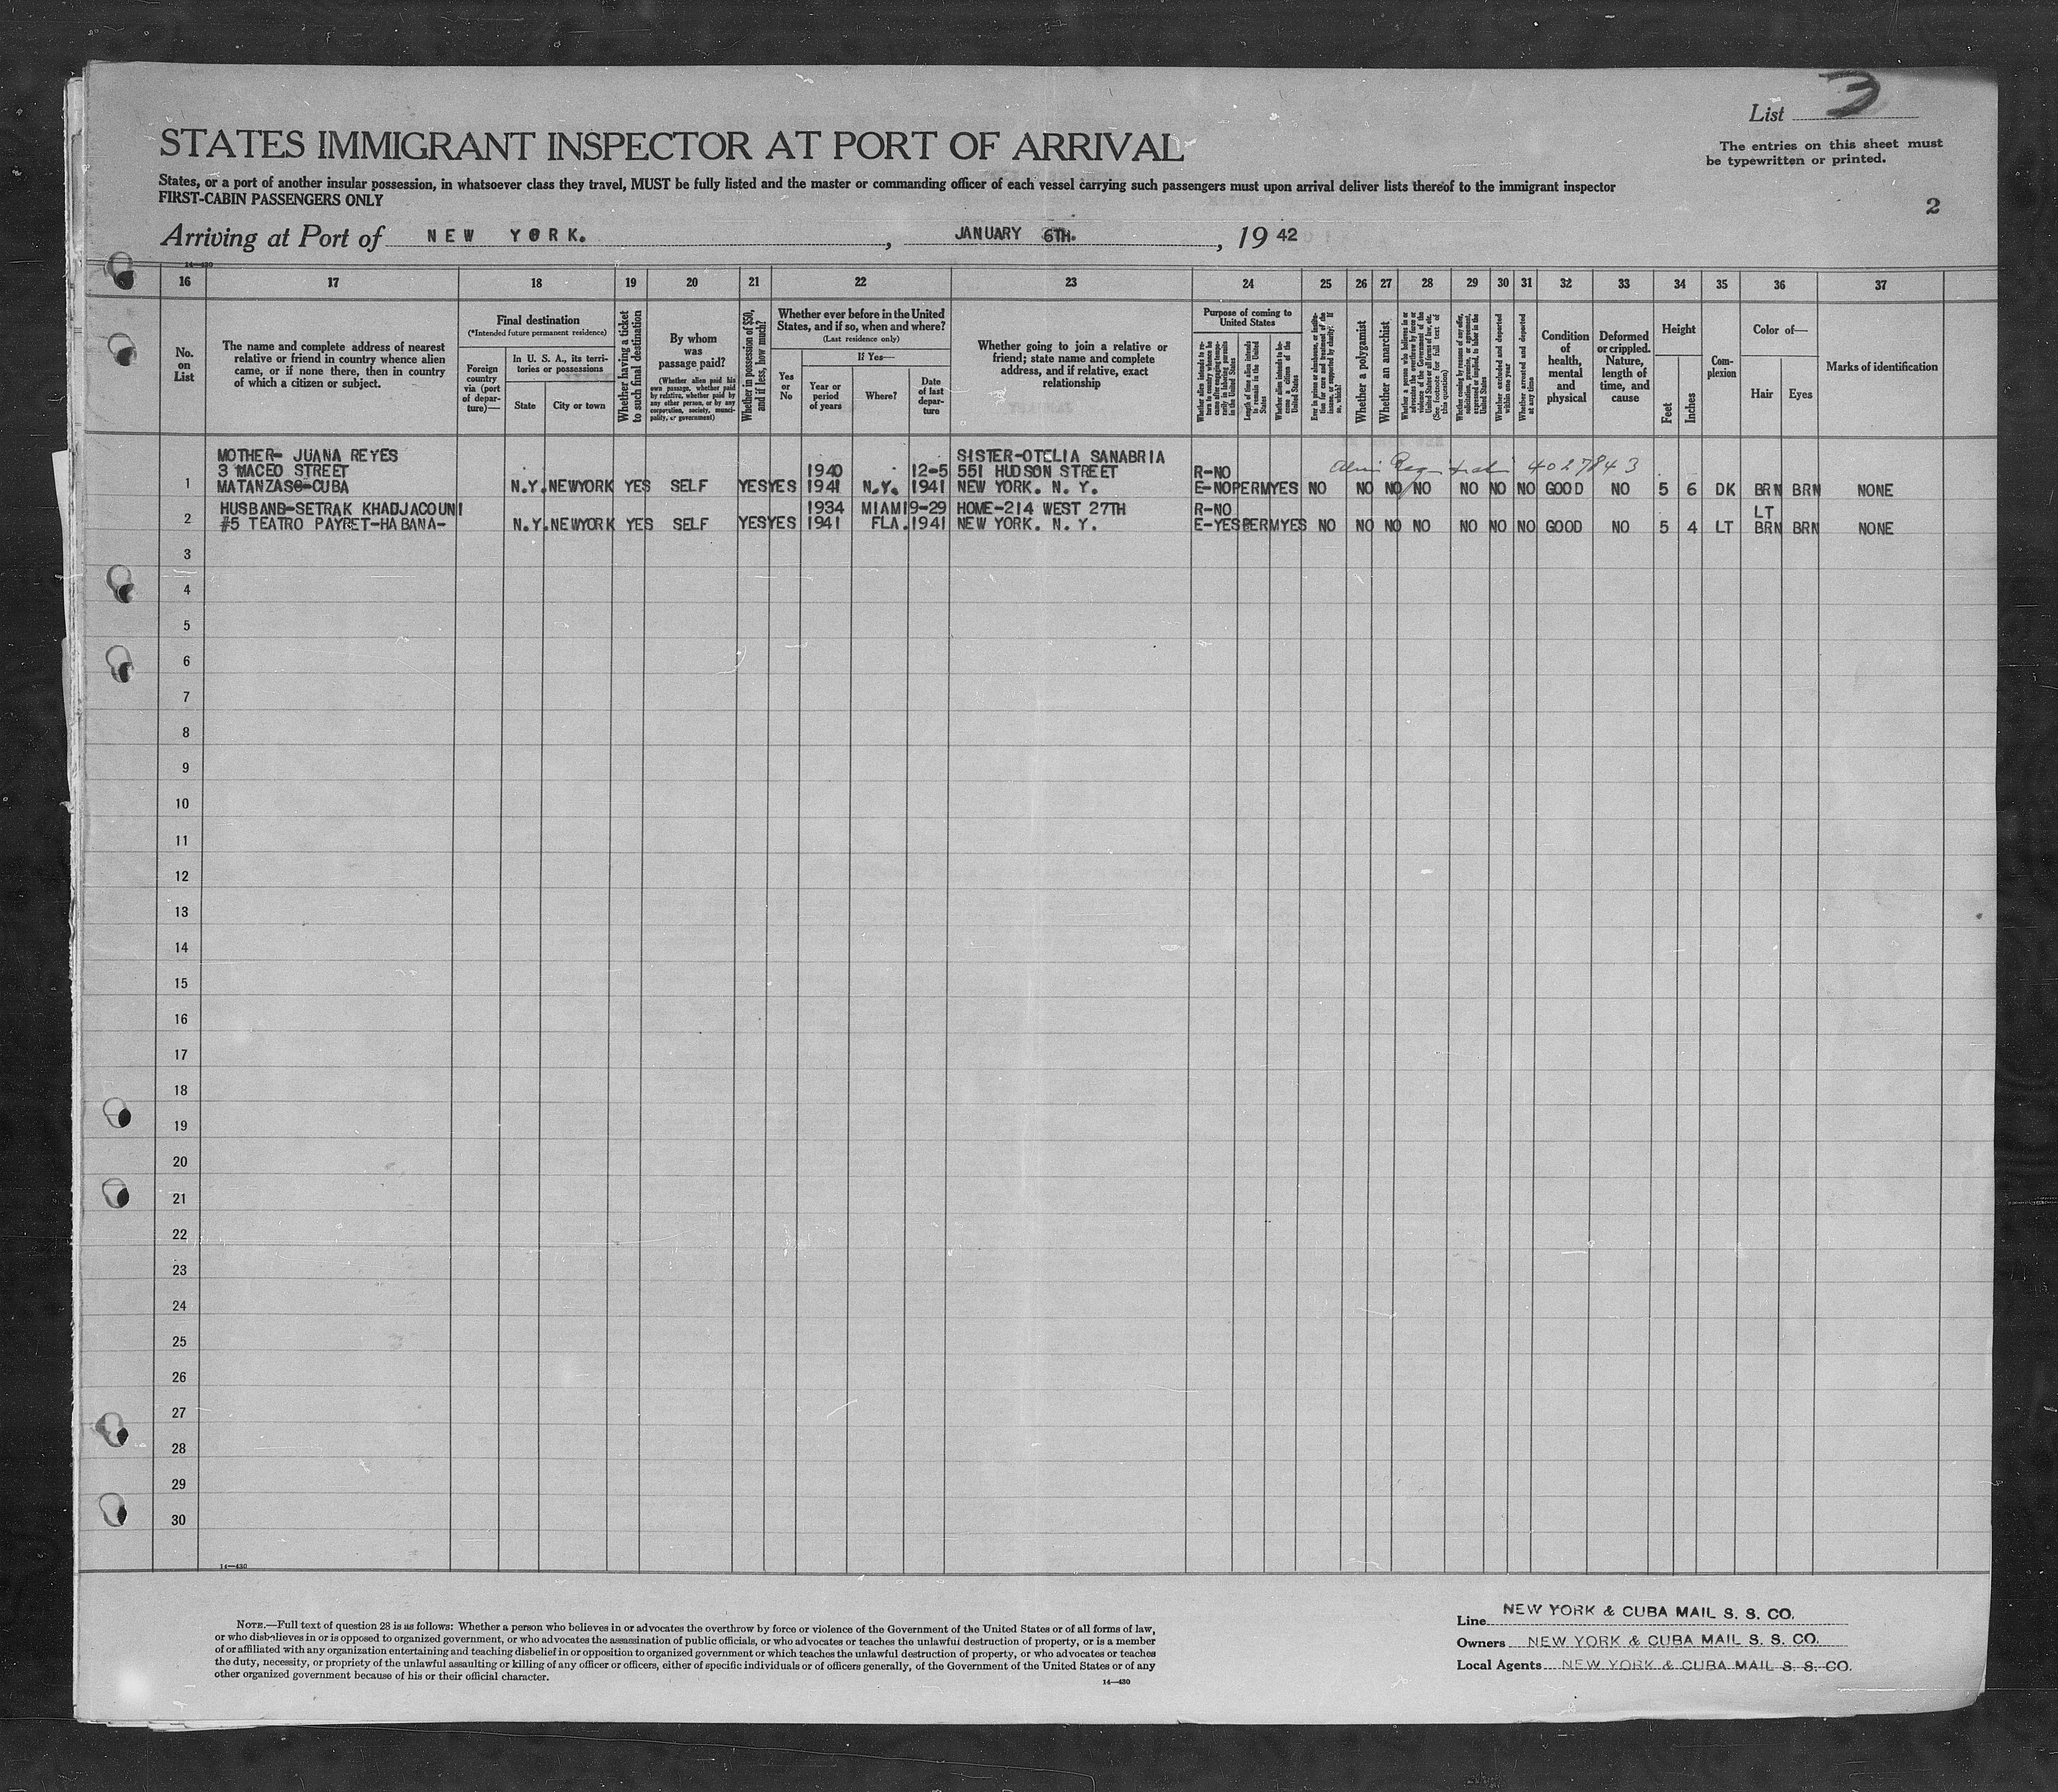 List 3
STATES IMMIGRANT INSPECTOR AT PORT OF ARRIVAL
The entries on this sheet must
be typewritten or printed.
States, or a port of another insular possession, in whatsoever class they travel, MUST be fully listed and the master or commanding officer of each vessel carrying such passengers must upon arrival deliver lists thereof to the immigrant inspector
FIRST-CABIN PASSENGERS ONLY
2
Arriving at Port of NEW YORK. , JANUARY 6TH. , 19 42
14—430
16 17 18 19 20 21 22 23 24 25 26 27 28 29 30 31 32 33 34 35 36 37
No. on List
The name and complete address of nearest
relative or friend in country whence alien
came, or if none there, then in country
of which a citizen or subject.
Final destination
(*Intended future permanent residence)
Foreign country via (port of departure)—
In U. S. A., its territories or possessions
State
City or town
Whether having a ticket to such final destination
By whom was passage paid?
(Whether alien paid his own passage, whether paid by relative, whether paid by any other person, or by any corporation, society, municipality, or government)
Whether in possession of $50, and if less, how much?
Whether ever before in the United
States, and if so, when and where?
(Last residence only)
Yes or No
If Yes—
Year or period of years
Where?
Date of last departure
Whether going to join a relative or
friend; state name and complete
address, and if relative, exact
relationship
Purpose of coming to
United States
Whether alien intends to return to country whence he came after engaging temporarily in laboring pursuits in the United States
Length of time alien intends to remain in the United States
Whether alien intends to become citizen of the United States
Ever in prison or almshouse, or institution for care and treatment of the insane, or supported by charity. If so, which?
Whether a polygamist
Whether an anarchist
Whether a person who believes in or advocates the overthrow by force or violence of the Government of the United States or all forms of law, etc. (See footnote for full text of this question)
Whether coming by reason of any offer, solicitation, promise, or agreement, expressed or implied, to labor in the United States
Whether excluded and deported within one year
Whether arrested and deported at any time
Condition of health, mental and physical
Deformed or crippled. Nature, length of time, and cause
Height
Feet
Inches
Complexion
Color of—
Hair
Eyes
Marks of identification
MOTHER- JUANA REYES SISTER-OTELIA SANABRIA
3 MACEO STREET 1940 12-5 551 HUDSON STREET R-NO 4027843
1 MATANZAS-CUBA N.Y. NEWYORK YES SELF YES YES 1941 N.Y. 1941 NEW YORK. N. Y. E-NO PERM YES NO NO NO NO NO NO NO GOOD NO 5 6 DK BRN BRN NONE
HUSBAND-SETRAK KHADJACOUNI 1934 MIAMI 9-29 HOME-214 WEST 27TH R-NO LT
2 #5 TEATRO PAYRET-HABANA- N.Y. NEWYORK YES SELF YES YES 1941 FLA. 1941 NEW YORK. N. Y. E-YES PERM YES NO NO NO NO NO NO NO GOOD NO 5 4 LT BRN BRN NONE
3
4
5
6
7
8
9
10
11
12
13
14
15
16
17
18
19
20
21
22
23
24
25
26
27
28
29
30
14—430
NOTE.—Full text of question 28 is as follows: Whether a person who believes in or advocates the overthrow by force or violence of the Government of the United States or of all forms of law,
or who disbelieves in or is opposed to organized government, or who advocates the assassination of public officials, or who advocates or teaches the unlawful destruction of property, or is a member
of or affiliated with any organization entertaining and teaching disbelief in or opposition to organized government or which teaches the unlawful destruction of property, or who advocates or teaches
the duty, necessity, or propriety of the unlawful assaulting or killing of any officer or officers, either of specific individuals or of officers generally, of the Government of the United States or of any
other organized government because of his or their official character.
14—430
Line NEW YORK & CUBA MAIL S. S. CO.
Owners NEW YORK & CUBA MAIL S. S. CO.
Local Agents NEW YORK & CUBA MAIL S. S. CO.